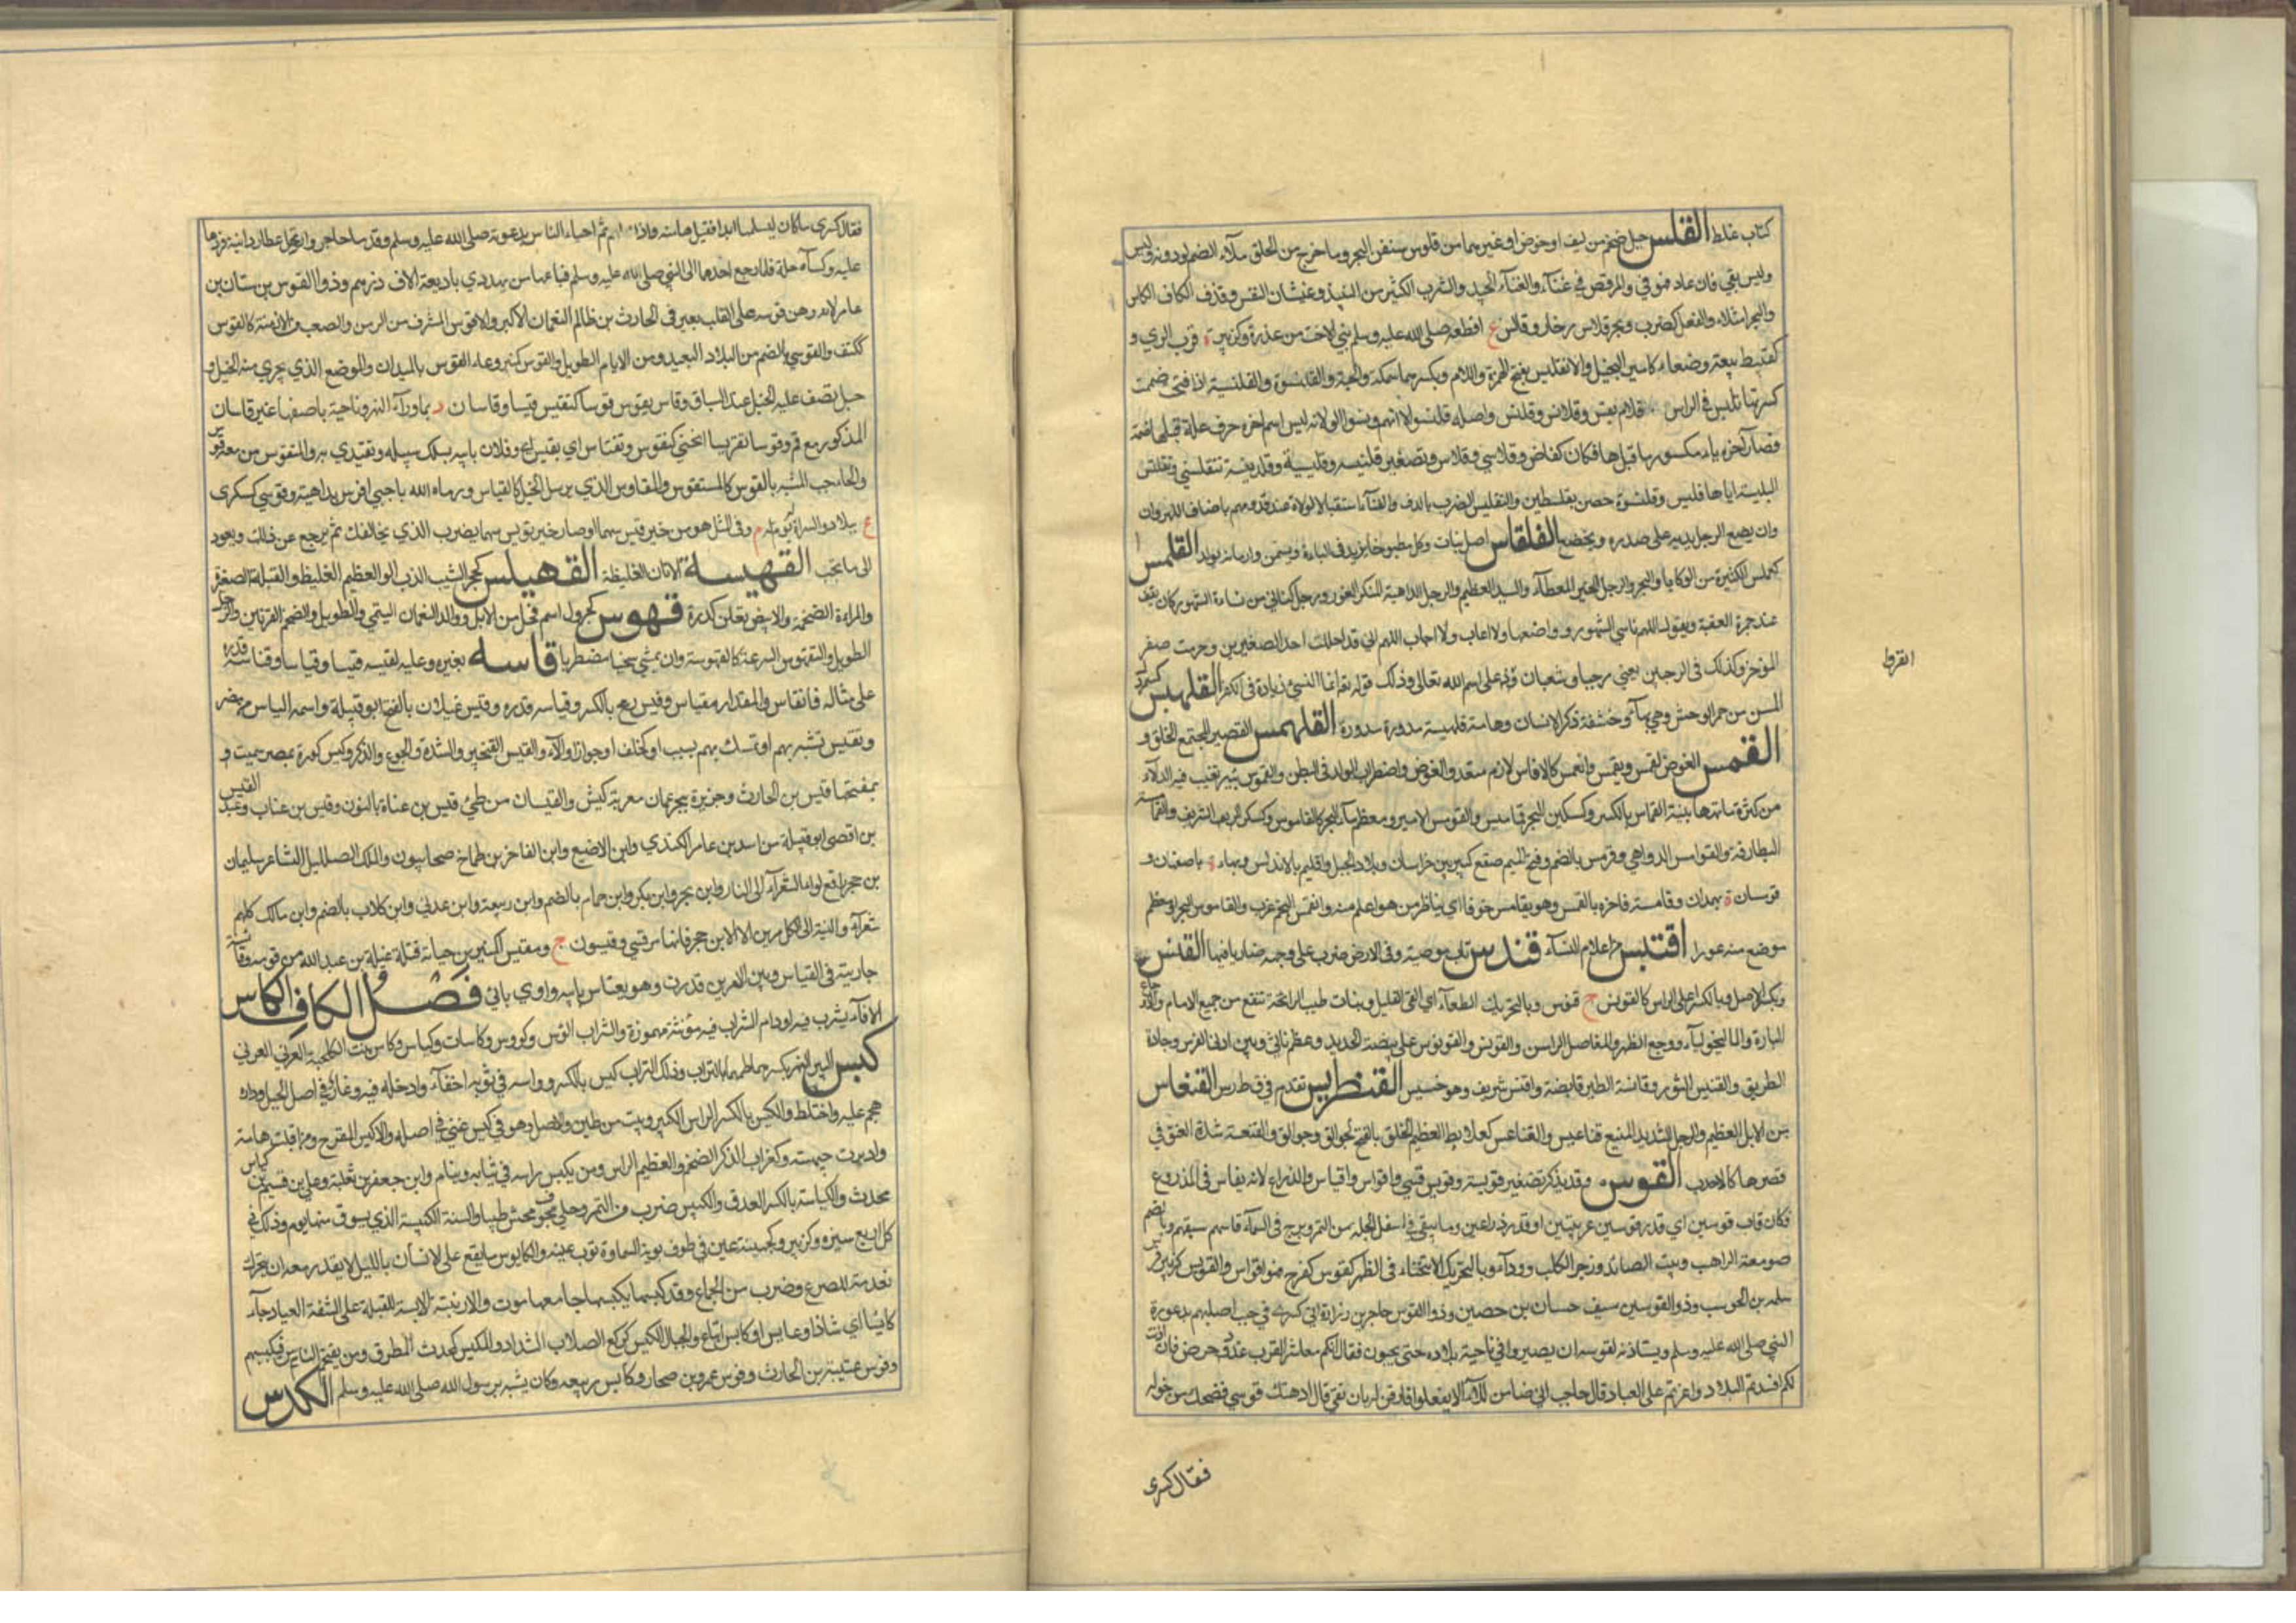 كتاب غلط القلس حبل ضخم من ليف او خوص او غيرهما من قلوس سفن البحر وما خرج من الحلق ملآء الفم او دونه وليس
وليس بقي فان عاد فهو قي والرقص في غنآء والغنآء الجيد والشرب الكثير من النبيذ وغثيان النفس وقذف الكاف الكاس
والبحر امتلاء والفعل كضرب وبحر قلاس زخار وقالس ع اقطعه صلى الله عليه وسلم بني الاحب من عذرة وكزبير ة قرب الري و
كقبيط بيعة وصنعاء كامير البخيل والانقليس بفتح الهمزة واللام وبكسرهما سمكة والحية والقلنسوة والقلنسية اذا فتحت ضممت
كسرتها تلبس في الراس قلانس وقلانيس وقلنس واصله قلنسو الا انهم رفضوا الواو لانه ليس اسم اخره حرف علة قبلها ضمة
فصار آخره ياء مكسور ما قبلها فكان كقاض وقلاسي وقلاس وتصغير قلنيسة وقليسية وقلنيسة تنقلسي وتقلنس
البسته اياها فلبس وقلنسوة حصن بفلسطين والتقليس الضرب بالدف والغنآء استقبال الولاة عند قدومهم باصناف اللهو وان
وان يضع الرجل يديه على صدره ويخضع القلقاس اصل نبات وكل مطبوخا يزيد في الباءة ويسمن وادمانه يولد القلمس
كعملس الكثيرة من الركايا والبحر والرجل الخير المعطآء والسيد العظيم والرجل الداهية المنكر الغور ورجل كناني من نساءة الشهور كان يقف
عند جمرة العقبة ويقول اللهم ناسي الشهور وواضعها ولا اعاب ولا احاب اللهم اني قد احللت احد الصفرين وحرمت صفر
الموخر وكذلك في الرجبين يعني رجبا وشعبان وانفروا على اسم الله تعالى وذلك قوله تعا انما النسئ زيادة في الكفر القلهبس
المسن من حمر الوحش وهي بهآء وحشفة ذكر الانسان وهامة قلهبسة مدورة القلهمس القصير المجتمع الخلق و
القمس الغوص يقمس ويقمس وانقمس كالاقماس لازم متعد والغوص واضطراب الولد في البطن والقموس بئر تغيب فيه الدلآء
من كثرة مائها بينة القماس بالكسر وكسكين البحر قماميس والقومس الامير ومعظم ماء البحر كالقاموس وكسكر الرجل الشريف
البطارقة والقوامس الدواهي وقومس بالضم وفتح الميم صقع كبير بين خراسان وبلاد الجبل واقليم بالاندلس وبهاء ة باصفهان و
قوسان ة بهمدان وقامسه فاخره بالقمس وهو يقامس حوتا اي يناظر من هو اعلم منه وانقمس النجم غرب والقاموس البحر او معظم
موضع منه غورا اقنبس من اعلام النسآء قندس تاب بعد معصية وفي الارض ضرب على وجهه ضاربا فيها القنس
وبكسر الاصل وبالكسر اعلى الراس كالقونس ج قنوس وبالتحريك الطلعآء اي القي القليل ونبات طيب الرائحة تنفع من جميع الالام والاوجاع
الباردة والماليخوليآء ووجع الظهر والمفاصل الراسن والقونس والقونوس على بيضة الحديد وعظم ناتئ بين اذني الفرس وجادة
الطريق والقنيس الثور وقانسة الطير قانصة واقنس شريف وهو خسيس القنطريس تقدم في قطرس القنعاس
من الابل العظيم والرجل الشديد المنيع قناعيس والقناعس كعلابط العظيم الخلق بالفتح كجوالق وجوالق والقنعسة شدة العنق في
قصرها كالاحدب القوس م وقد يذكر تصغير قويسة وقويس قسي واقواس واقياس والذراع لانه يقاس في المذروع
فكان قاب قوسين اي قدر قوسين عربيتين او قدر ذراعين وما يبقى في اسفل الجلة من التمر وبرج في السمآء قاسهم سبقهم وبالضم
صومعة الراهب وبيت الصائد وزجر الكلب وواد وبالتحريك الانحناء في الظهر كقوس كفرح فهو اقواس والقويس كزبير فرس
سلمة بن الحوسب وذو القوسين سيف حسان بن حصين وذو القوس حاجب بن زرارة اتى كسرى في جدب اصابهم بدعوة
النبي صلى الله عليه وسلم ويستاذنه لقومه ان يصيروا في ناحية بلاده حتى يحيون فقال انكم معاشر العرب غدر وحرص فان اذنت
لكم افسدتم البلاد واغرتم على العباد قال حاجب اني ضامن للملك الا يفعلوا قال فمن لي بان تفي قال ارهنك قوسي فضحك من حوله
فقال كسرى
انقروا
فقال كسرى ما كان ليسلمها ابدا فقبلها منه واذن لهم ثم احياء الناس بدعوته صلى الله عليه وسلم وقد مات حاجب وارتحل عطارد ابنه
عليه وكساه حلة فلما رجع اهداها الى النبي صلى الله عليه وسلم فباعها من يهودي باربعة الاف درهم وذو القوس بن سنان بن
عامر لانه رهن قوسه على القلف بعير في الحارث بن ظالم النعمان الاكبر والاقوس المشرف من الرمل والصعب من الازمنة كالقوس
ككتف والقوسي بالضم من البلاد البعيد ومن الايام الطويل والقوس كمنبر وعاء القوس بالميدان والموضع الذي يجري منه الخيل و
حبل تصف عليه الخيل عند السباق وقاس يقوس قوسا كيقيس قيسا وقاسان د بماورآء النهر وناحية باصفهان غير قاسان
المذكور مع قم وقوسا تقريسا انحنى كتقوس وتقتاس اي يقيس وفلان بابيه يسلك سبيله ويقتدي به والمتقوس من معه قوس
والحاجب المشبه بالقوس كالمستقوس والمقاوس الذي يرسل الخيل كالقياس ورماه الله باحبى اقوس بداهية وقوسي كسكرى
ع ببلاد السراة له يوم م وفي المثل هو من خير قويس سهما او صار خير قويس سهما يضرب الذي يخالفك ثم يرجع عن ذلك ويعود
الى ما تحب القهبسة الاتان الغليظة القهبلس كجحمرش الذب او العظيم الغليظ والقملة الصغيرة
والمراءة الضخمة والابيض تعلوه كدرة قهوس كجرول اسم فحل من الابل ووالد النعمان التيمي والطويل والضخم القرنين والرجل
الطويل والتقهوس السرعة كالقهوسة وان يمشي منحنيا مضطربا قاسه بغيره وعليه يقيسه قيسا وقياسا واقتاسه قدره
على مثاله فانقاس والمقدار مقياس وقيس رمح بالكسر وقياسه قدره وقيس غيلان بالفتح ابو قبيلة واسمه الياس بن مضر
وتقيس تشبه بهم او تمسك بهم بسبب او كحلف او جوار او ولآء والقيس التبختر والشدة والجوع والذكر وقيس كورة بمصر سميت و
بمفتتحها قيس بن الحارث وجزيرة ببحر عمان معربة كيش والقيسان من طيئ قيس بن عناة بالنون وقيس بن عتاب وعبد القيس
بن اقصى ابو قبيلة من اسد بن عامر الكندي وابن الاضبع وابن الفاخر بن طماخ صحابيون والملك الضليل الشاعر سليمان
بن حجر رافع لواء الشعرآء الى النار وابن بحر وابن بكر وابن حمام بالضم وابن ربيعة وابن عدي وابن كلاب بالضم وابن مالك كلهم
شعرآء والنسبة الى الكل مرئي الا ابن حجر فانها مرقسي وقيسون ج ومقيس كمنبر بن حبابة قتله نميلة بن عبد الله من قومه
جاريته في القياس وبين الامرين قدرت وهو يقتاس بابيه واوي يائي فصل الكاف الكاس
الانآء يشرب فيه او ما دام الشراب فيه مؤنثة مهموزة والشراب اكؤس وكؤوس وكاسات وكياس وكاس بنت الكلحبة العرني
كبس البير والنهر يكبسهما طمهما بالتراب وذلك التراب كبس بالكسر وراسه في ثوبه اخفآء وادخله فيه وغار في اصل الجبل وداره
هجم عليه واختاط والكبس بالكسر الراس الكبير وبيت من طين والاصل وهو في كبس غني في اصله والاكبس الفرج ومن اقبلت هامته
وادبرت جبهته وكغراب الذكر الضخم والعظيم الراس ومن يكبس راسه في ثيابه وينام وابن جعفر بن ثعلبة وعلي بن قسيم بن كباس
محدث والكباسة بالكسر العذق والكبيس ضرب من التمر وحلي مجوف محشو طيبا والسنة الكبيسة الذي يسرق منها يوم وذلك في
كل اربع سنين وكزبير وكجهينة عين في طرف برية السماوة قرب هيت والكابوس ما يقع على الانسان بالليل لا يقدر معه ان يتحرك
مقدمة للصرع وضرب من الجماع وقد كبسها يكبسها جامعها مرة والارنبة الكابسة المقبلة على الشفة العليا وجآء
كابسا اي شاذا وعابس كابس اتباع والجبال الكبس كركع الصلاب الشداد والمكبس كمحدث المطرق ومن يقتحم الناس فيكبسهم
وفرس عتيبة بن الحارث وفرس عمرو بن صحار وكابس ربيعة وكان يشبه برسول الله صلى الله عليه وسلم الكدس